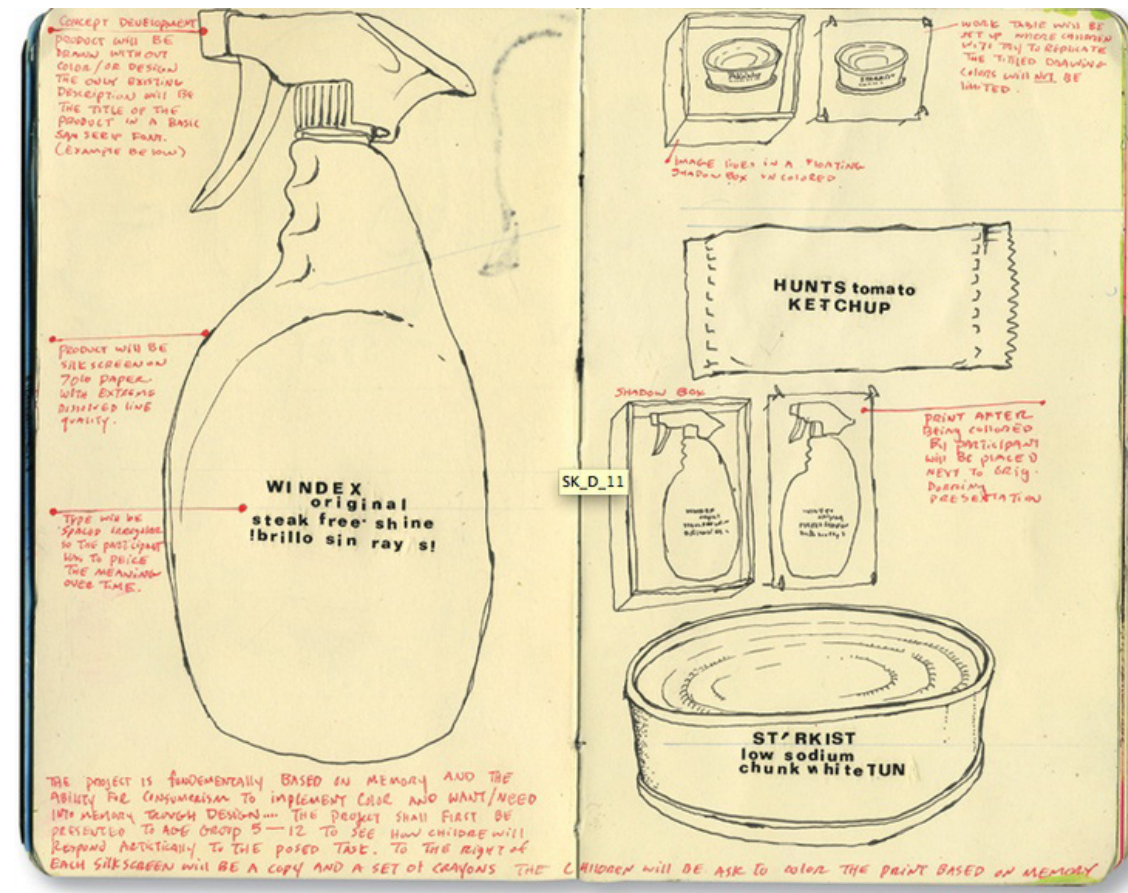 CONCEPT DEVELOPMENT
PRODUCT WILL BE
DRAWN WITHOUT
COLOR/OR DESIGN
THE ONLY EXISTING
DESCRIPTION WILL BE
THE TITLE OF THE
PRODUCT IN A BASIC
SAN SERIF FONT.
(EXAMPLE BELOW)
PRODUCT WILL BE
SILKSCREEN ON
70lb PAPER
WITH EXTREME
LINE
QUALITY.
TYPE WILL BE
SPACED IRREGULAR
SO THE PARTICIPANT
HAS TO PEICE
THE MEANING
OVER TIME.
WINDEX
original
steak free shine
!brillo sin ray s!
THE PROJECT IS FUNDEMENTALLY BASED ON MEMORY AND THE
ABILITY FOR CONSUMERISM TO IMPLEMENT COLOR AND WANT/NEED
INTO MEMORY TROUGH DESIGN.... THE PROJECT SHALL FIRST BE
PRESENTED TO AGE GROUP 5—12 TO SEE HOW CHILDRE WILL
RESPOND ARTISTICALLY TO THE POSED TASK. TO THE RIGHT OF
EACH SILKSCREEN WILL BE A COPY AND A SET OF CRAYONS THE CHILDREN WILL BE ASK TO COLOR THE PRINT BASED ON MEMORY
WORK TABLE WILL BE
SET UP WHERE CHILDREN
WILL TRY TO REPLICATE
THE TITLED DRAWING
COLORS WILL NOT BE
LIMITED.
IMAGE GOES IN A FLOATING
SHADOW BOX UNCOLORED
HUNTS tomato
KETCHUP
SHADOW BOX
PRINT AFTER
BEING COLLORED
BY PARTICIPANT
WILL BE PLACED
NEXT TO ORIG.
DURRING
PRESENTATION
SK_D_11
ST RKIST
low sodium
chunk white TUN